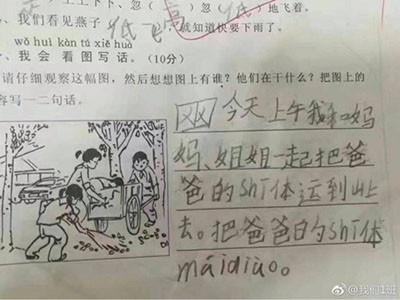 上上下下、忽( )忽( )地飞着。
、我们看见燕子低飞,就知道快要下雨了。
wǒ huì kàn tú xiě huà
、我会看图写话。(10分)
请仔细观察这幅图,然后想想图上有谁?他们在干什么?把图上的
容写一二句话。
今天上午我和妈
妈、姐姐一起把爸
爸的shī体运到山上
去。把爸爸的shī体
mái diào。
@我们1班